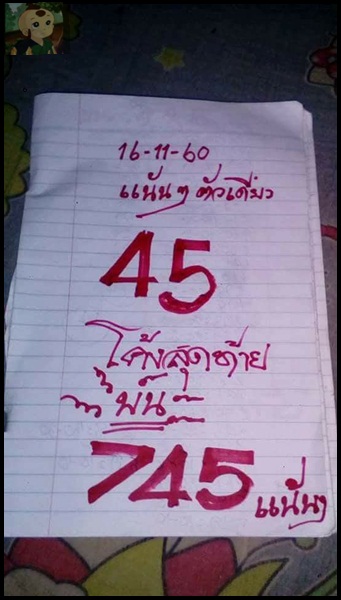 16-11-60
แน้นๆ ตัวเดี่ยว
45
โค้งสุดท้าย
พ้น
745 แน้นๆ